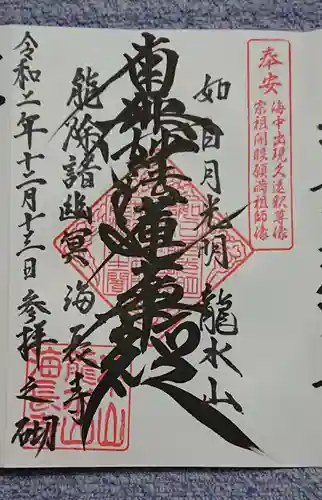 奉安
海中出現久遠釈尊像
宗祖開眼願満祖師像
如日月光明
龍水山
南無妙法蓮華経
能除諸幽冥
海長寺
令和二年十二月十三日
参拝之砌